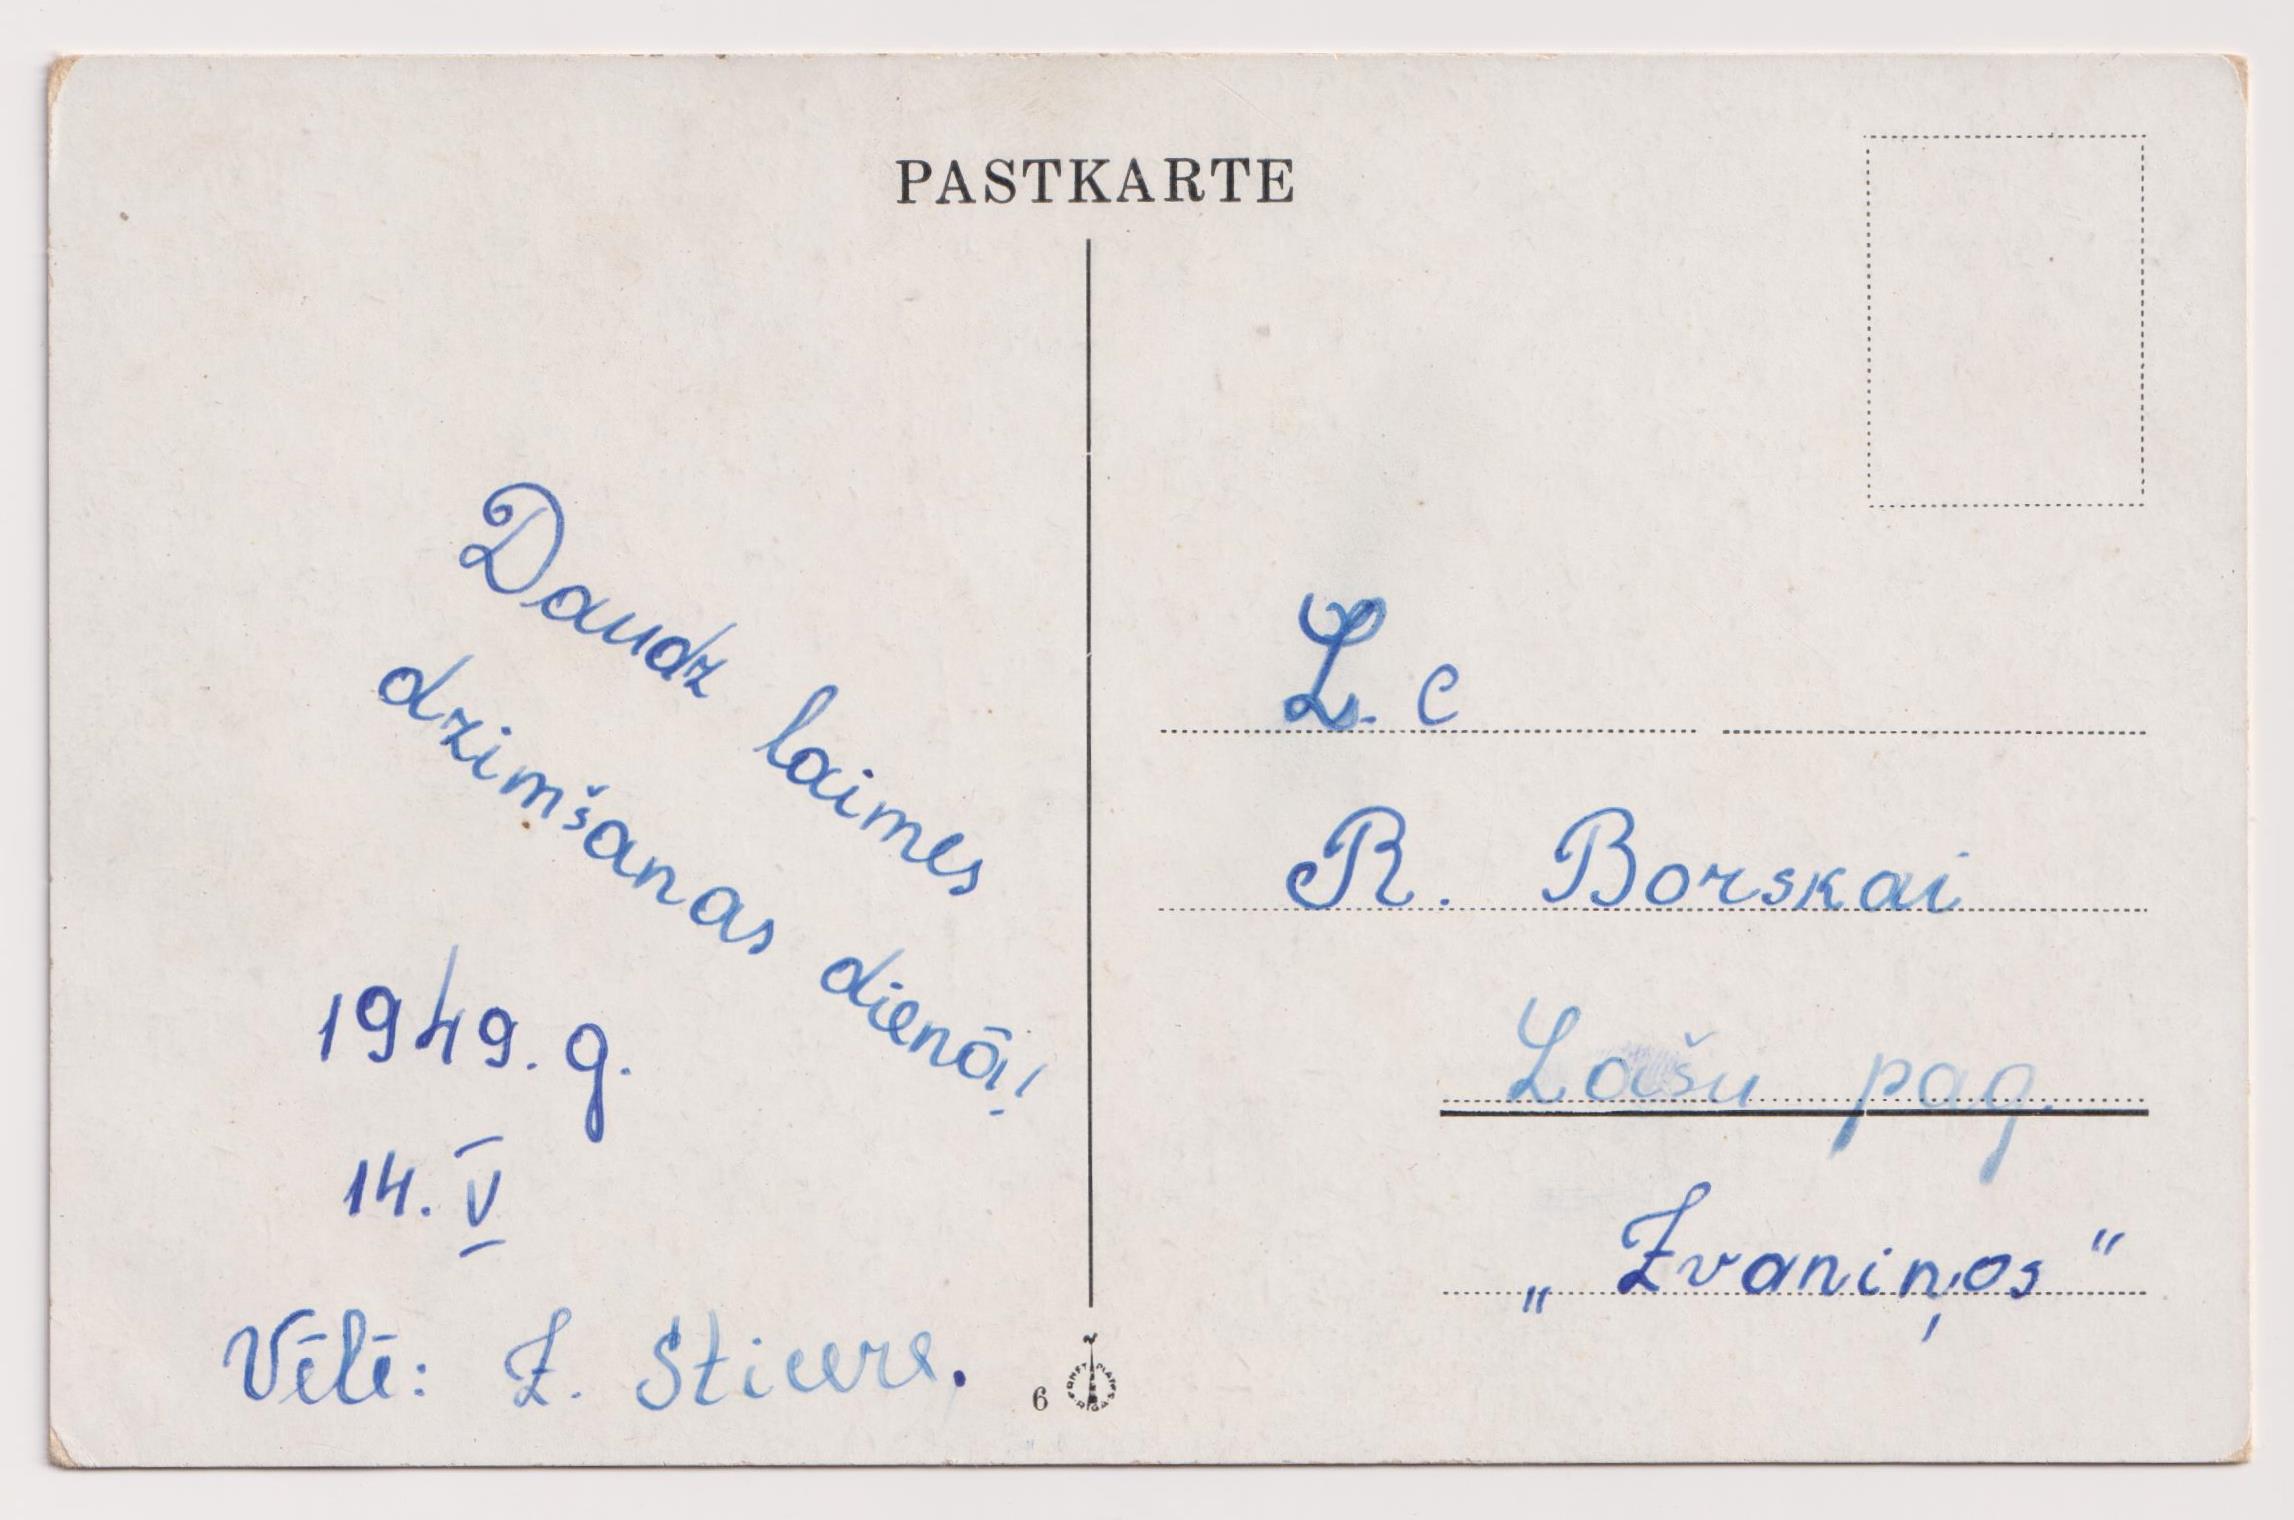 PASTKARTE
Daudz laimes
dzimšanas dienā!
1949. g.
14. V
Vēlē: Z.
L. c
R. Borskai
Lašu pag.
„Zvaniņos“
6